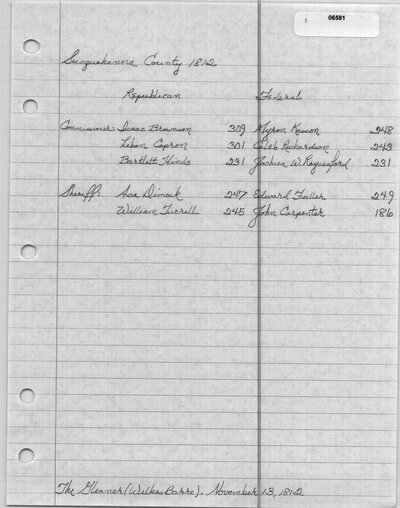 06581
Susquehanna County 1812
Republican Federal
Commissioner: Isaac Brownson 309 Myron Kasson 248
Laban Capron 301 Caleb Richardson 243
Bartlett Hinds 291 Joshua W. Raynsford 231
Sheriff: Asa Dimock 247 Edward Fuller 249
William Turrell 245 John Carpenter 186
The Gleaner (Wilkes Barre). November 13, 1812